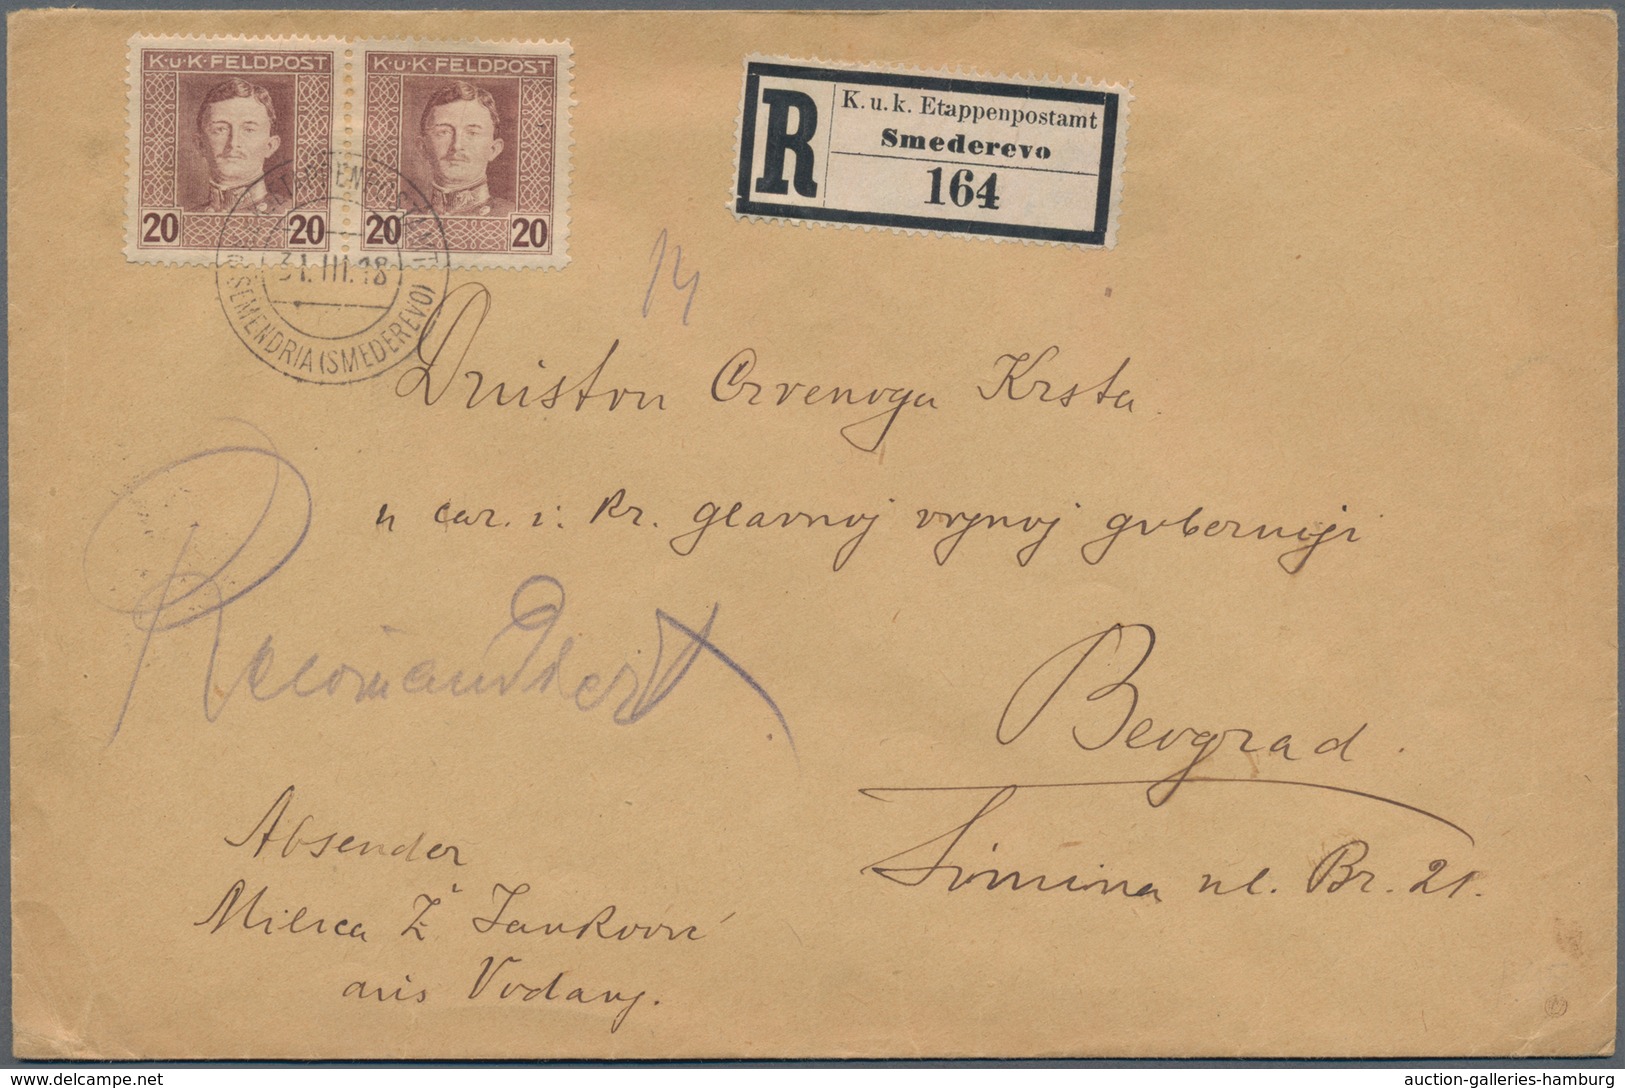 K·u·K·FELDPOST K·u·K·FELDPOST
20 20 20 20
K.u.K. ETAPPENPOSTAMT
31.III.18
SEMENDRIA (SMEDEREVO)
R
K. u. k. Etappenpostamt
Smederevo
164
14
Druištvu Crvenoga Krsta
u car. i. kr. glavnoj vojnoj guberniji
Rekomandiert
Beograd.
Simina ul. Br. 21.
Absender
Milica Ž. Janković
aus Vodanj.
auction-galleries-hamburg
www.delcampe.net